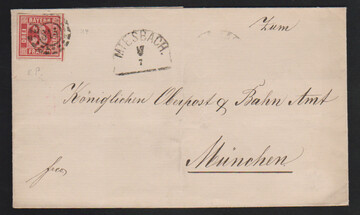 BAYERN
DREI
Zum
MIESBACH.
7
Königlichen Oberpost & Bahn Amt
München
frei